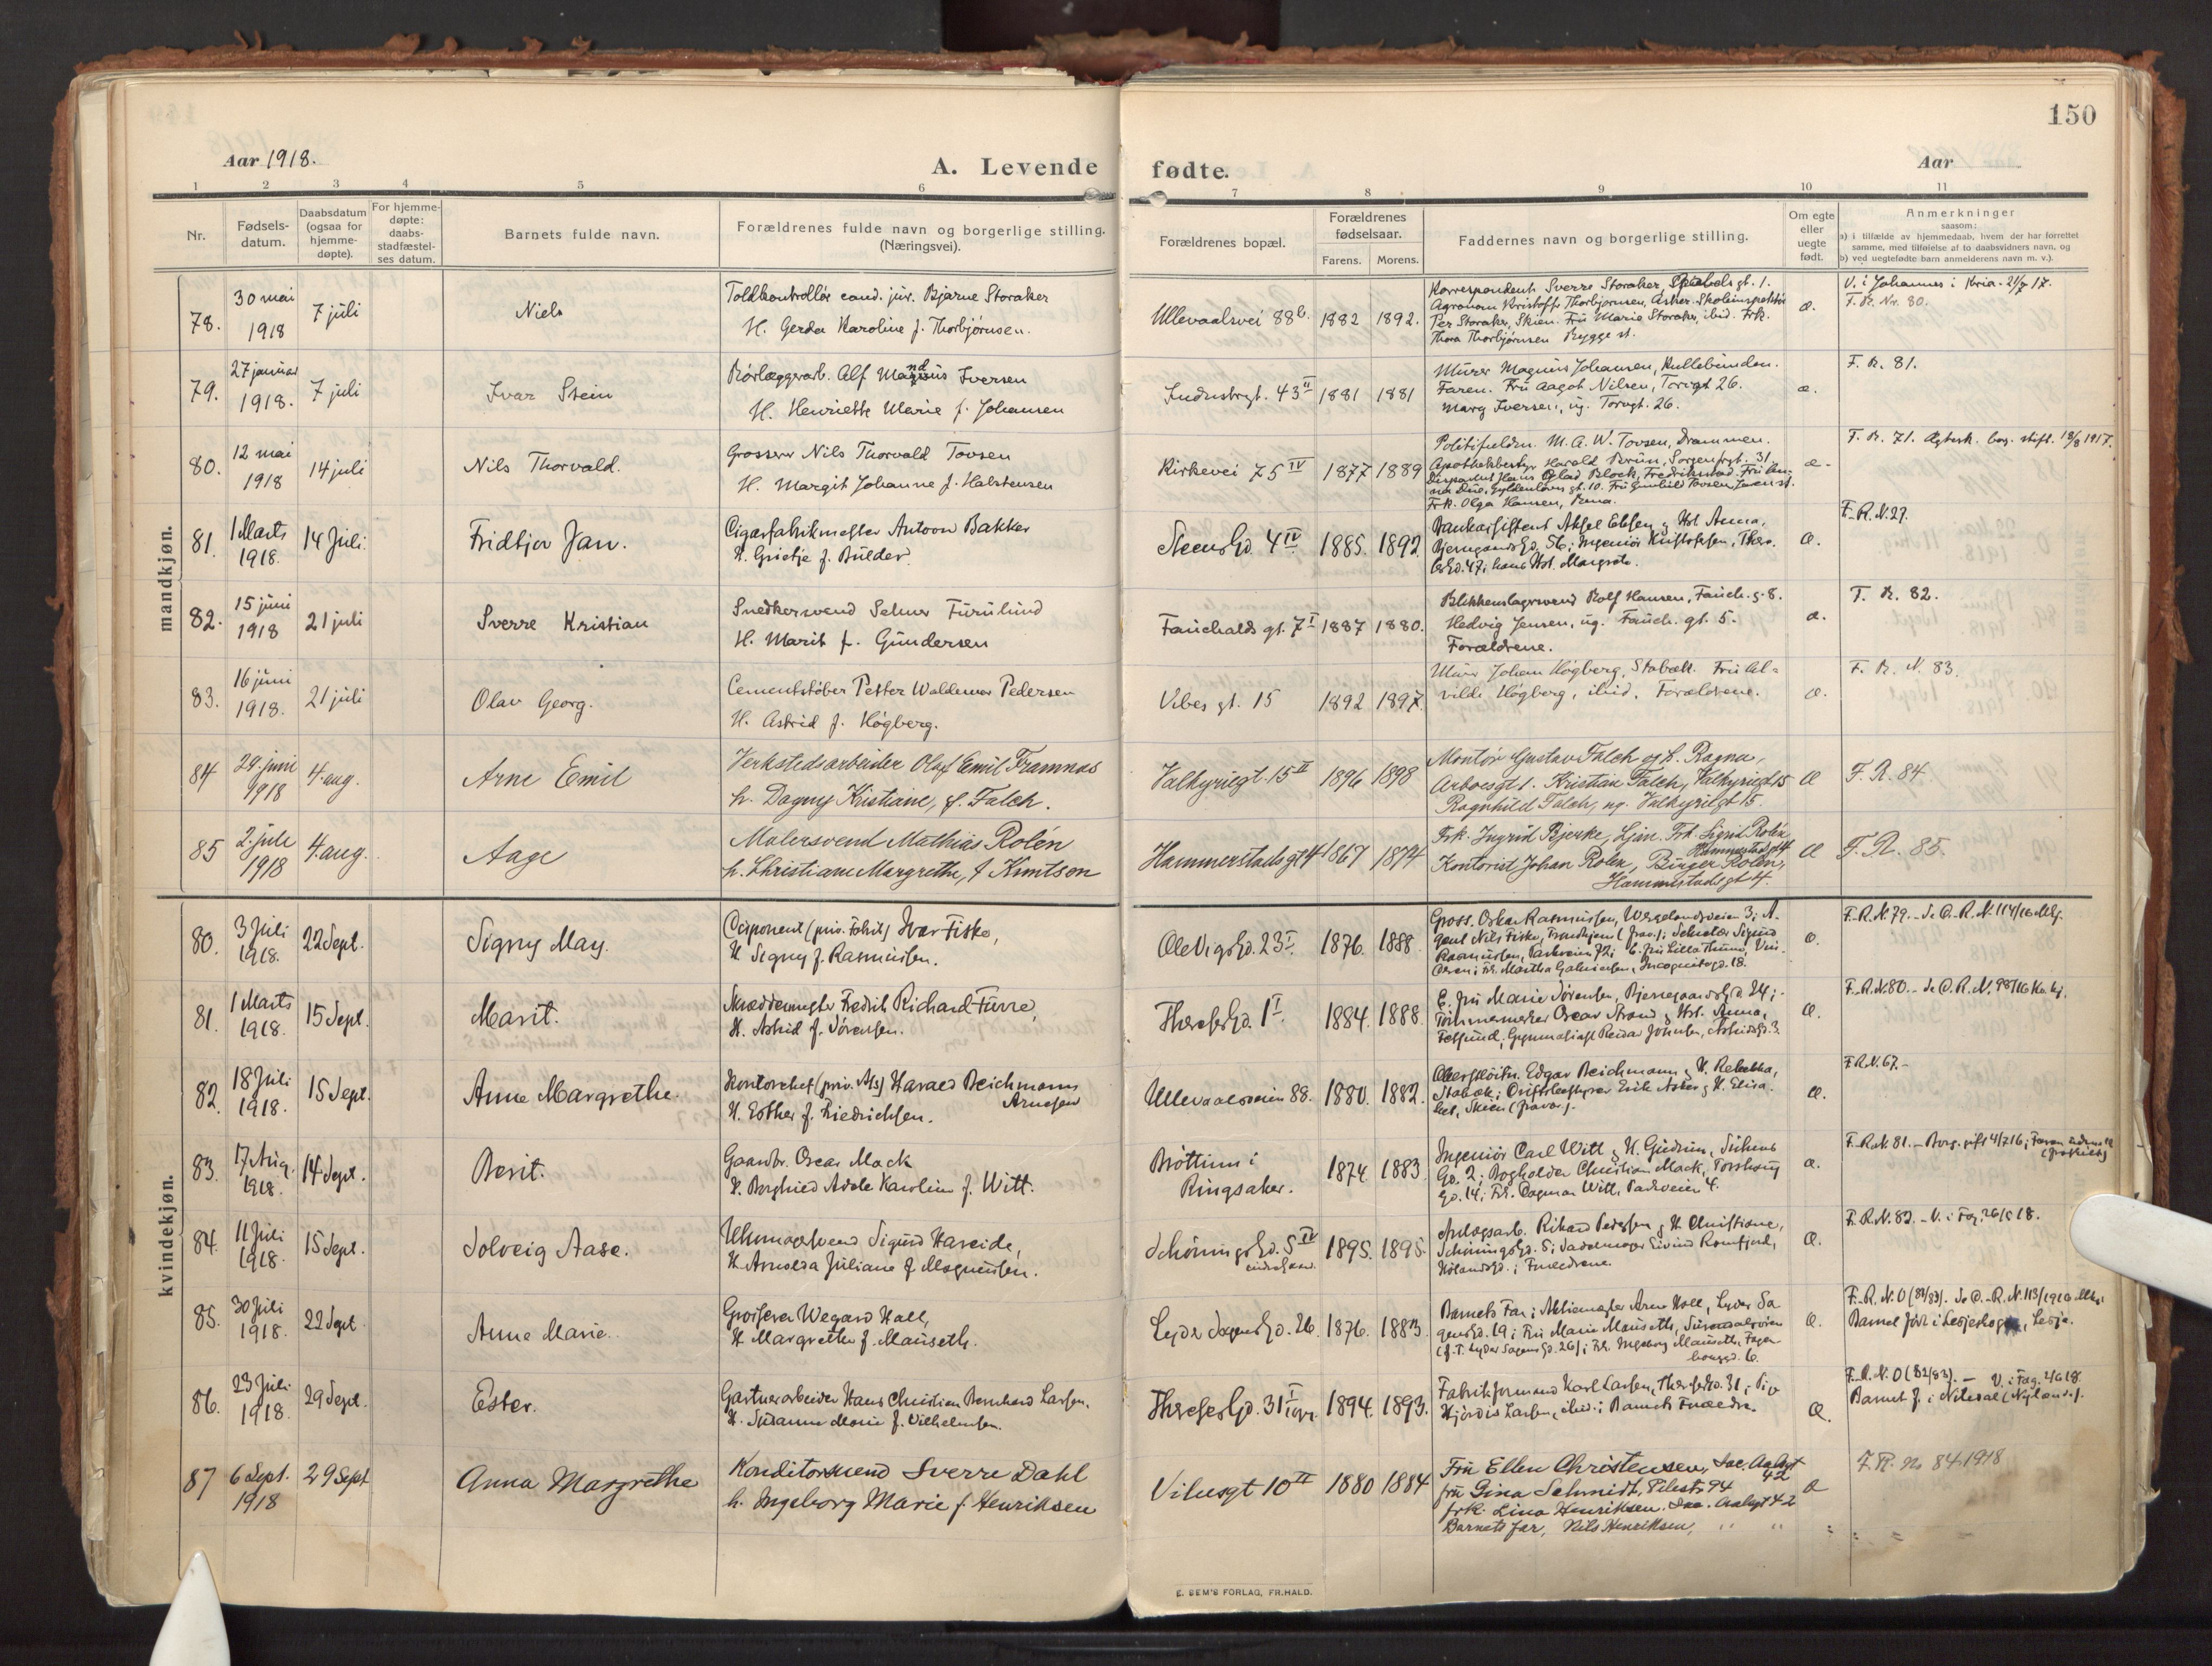 150
Aar 1918.
A. Levende fødte.
Aar
1 2 3 4 5 6 7 8 9 10 11
Nr.
Fødsels-
datum.
Daabsdatum
(ogsaa for
hjemme-
døpte).
For hjemme-
døpte:
daabs-
stadfæstel-
ses datum.
Barnets fulde navn.
Forældrenes fulde navn og borgerlige stilling.
(Næringsvei).
Forældrenes bopæl.
Forældrenes
fødselsaar.
Farens. Morens.
Faddernes navn og borgerlige stilling.
Om egte
eller
uegte
født.
Anmerkninger
saasom:
a) i tilfælde av hjemmedaab, hvem der har forrettet
samme, med tilføielse af to daabsvidners navn, og
b) ved uegtefødte barn anmelderens navn m. v.).
mandkjøn.
78.
30 mai
1918
7 juli
Niels
Toldkontrollør cand. jur. Bjarne Storaker
H. Gerda Karoline f. Thorbjørnsen.
Ullevaalsvei 88b.
1882
1892.
Korrespondent Sverre Storaker, gt. 1.
Agronom Kristoffer Thorbjørnsen, Asker. Skoleinspektør
Per Storaker, Skien. Fru Marie Storaker, ibid. Frk.
Thora Thorbjørnsen Rygge st.
æ.
V. i Johannes i Kria. 21/7 17.
F. R. Nr. 80.
79.
27 januar
1918.
7 juli
Ivar Stein
Rørlæggerarb. Alf Iversen
H. Henriette Marie f. Johansen
Industrigt. 43 II
1881
1881
Murer Magnus Johansen,
Faren. Fru Aagot Nilsen, Torvgt. 26.
Marg Iversen, ug. Torvgt. 26.
æ.
F. R. 81.
80.
12 mai
1918
14 juli
Nils Thorvald.
Grosserer Nils Thorvald Tovsen
H. Margit Johanne f. Halstensen
Kirkevei 75 IV
1877
1889
Politifuldm. M. A. W. Tovsen, Drammen.
Apothekbestyr. Harald Bruun, Sorgenfrigt. 31
Disponent Hans Block, Fredrikstad. Fru
gt. 10. Fru Gunhild Tovsen,
Frk. Olga Hansen,
æ.
F. R. 71. Ægtesk. borg. stift. 18/8 1917.
81.
1 Marts
1918.
14 Juli.
Fridtjov Jan.
Cigarfabrikmester Antoon Bakker
H. Grietje f. Bulder.
Steensgd. 4 IV
1885.
1892.
Bankassistent Aksel Ebsen og Hst. Anna,
56; Ingeniør Kristofersen, There-
sesgd. 47; hans Hst. Margrete.
æ.
F. R. N. 27.
82.
15 juni
1918
21 juli
Sverre Kristian
Snedkersvend Selmer Furulund
H. Marit f. Gundersen
Fauchalds gt. 7 I
1887
1880.
Blikkenslagersvend Rolf Hansen, Fauch. g. 8.
Hedvig Jensen, ug. Fauch. gt. 5.
Forældrene.
æ.
F. R. 82.
83.
16 juni
1918.
21 juli
Olav Georg.
Cementstøber Petter Waldemar Pedersen
H. Astrid f. Høgberg.
Vibes gt. 15
1892
1897.
Murer Johan Høgberg, Stabæk. Fru Al-
vilde Høgberg, ibid. Forældrene.
æ.
F. R. N. 83.
84
29. juni
1918
4. aug.
Arne Emil
Verkstedsarbeider Olaf Emil Framnas
h. Dagny Kristiane, f. Falch.
Valkyriegt. 15 II
1896
1898
Montør Gustav Falch og h. Ragna,
Arboesgt 1. Kristian Falch, Valkyriegt 15
Ragnhild Falch, ug. Valkyriegt 15.
Æ
F. R. 84.
85
2. juli
1918
4. aug.
Aage
Malersvend Mathias Rolén
h. Christiane Margrethe, f. Knutson
Hammerstads gt 4
1867
1874
Frk. Ingrid Bjerke, Ljan. Frk. Sigrid Rolén
Hammerstadgt 4.
Kontorist Johan Rolén, Birger Rolén,
Hammerstads gt 4.
Æ
F. R. 85.
kvindekjøn.
80.
3 Juli
1918.
22 Sept.
Signy May.
Disponent (priv. Fabrik) Ivar Fiske,
H. Signy f. Rasmussen.
Ole Vigs Gd. 23 I
1876.
1888.
Gross. Oskar Rasmussen, Wergelandsveien 3; A-
gent Nils Fiske, Trondhjem (frav.); Sigurd
Rasmussen, Parkveien 72; E. Fru Lilla Thune,
Frk. Martha Gabrielsen, Incognitogd. 18.
æ.
F. R. N. 79. - Se D. R. N. 114/16
81.
1 Marts
1918.
15 Sept.
Marit.
Skreddermester Fredrik Richard Furre,
H. Astrid f. Sørensen.
Theresesgd. 1 I
1884.
1888.
E. Fru Marie Sørensen, Bjerregaardsgd. 24;
Oscar Strand og Hst. Anna,
Fetsund, Gymnasiast Reidar Johnsen,
æ.
F. R. N. 80. - Se D. R. N. 98/16
82.
18 Juli
1918.
15 Sept.
Anne Margrethe.
Kontorchef (priv. A/s) Harald Beichmann
Arnesen
H. Esther f. Friedrichsen.
Ullevaalsveien 88.
1880.
1882.
Edgar Beichmann og H. Rebekka,
Stabæk; Driftsbestyrer Erik Asker og H. Elisa-
bet, Skien (frav.).
æ.
F. R. N. 67. -
83.
17 Aug.
1918.
14 Sept.
Berit.
Gaardbr. Oscar Mack
H. Borghild Adele Karoline f. Witt.
Brøttum i
Ringsaker.
1874.
1883.
Ingeniør Carl Witt og H. Gudrun, Suhms
Gd. 2; Bogholder Christian Mack, Torshaug
Gd. 14; Frk. Dagmar Witt, Parkveien 4.
æ.
F. R. N. 81. - Borg. gift 4/7 16;
84.
11 Juli
1918.
15 Sept.
Solveig Aase.
Uhrmagersvend Sigurd Hareide,
H. Arnolda Juliane f. Magnussen.
Schønings Gd. 5 IV
1895.
1895.
Anlægsarb. Rikard Pedersen og H. Christiane,
Schønings Gd. 5; Sadelmager Eivind Romfjord,
Forældrene.
æ.
F. R. N. 82. - V. i Fag. 26/5 18.
85.
30 Juli
1918.
22 Sept.
Anne Marie.
Grosserer Wegard Hall,
H. Margrethe f. Mauseth.
Lyder Sagens Gd. 26.
1876.
1883.
Barnets Far; Arne Hall, Lyder Sa-
gens Gd. 19; Fru Marie Mauseth,
(f. T. Lyder Sagens Gd. 26); Frk. Ingeborg Mauseth, Fager-
borggd. 6.
æ.
F. R. N. 0 (82/83). Se D. R. N. 113/1916
Barnet født i Lesjeskogen, Lesje.
86.
23 Juli
1918.
29 Sept.
Ester.
Gartnerarbeider Hans Christian Bernhard Larsen,
H. Susanne Marie f. Vilhelmsen.
Thereses Gd. 31 I
1894.
1893.
Fabrikformand Karl Larsen, Theresesgd. 31; Pike
Hjørdis Larsen, ibid.; Barnets Forældre.
Æ.
F. R. N. 0 (82/83). - V. i Fag. 2/6 18.
Barnet f. i Nitedal
87
6 Sept.
1918
29 Sept
Anna Margrethe
Konditorsvend Sverre Dahl
h. Ingeborg Marie f. Henriksen
Vibesgt 10 II
1880
1884
Fru Ellen Christensen, Jac. Aalsgt
42
fru Gina Schmidt, Pilestr 94
frk. Lina Henriksen. Jac. Aalsgt 42
Barnets far, Nils Henriksen, " "
æ
F. R. no 84. 1918
E. SEM'S FORLAG, FR.HALD.